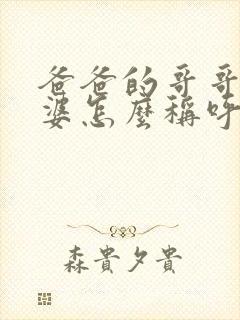 爸爸的哥哥
婆怎麼稱呼
森貴夕貴